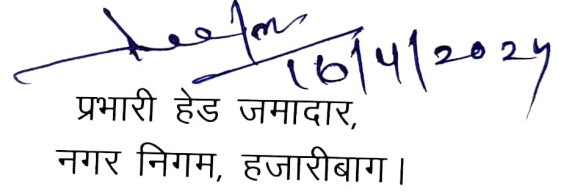 16/4/2024
प्रभारी हेड जमादार,
नगर निगम, हजारीबाग।